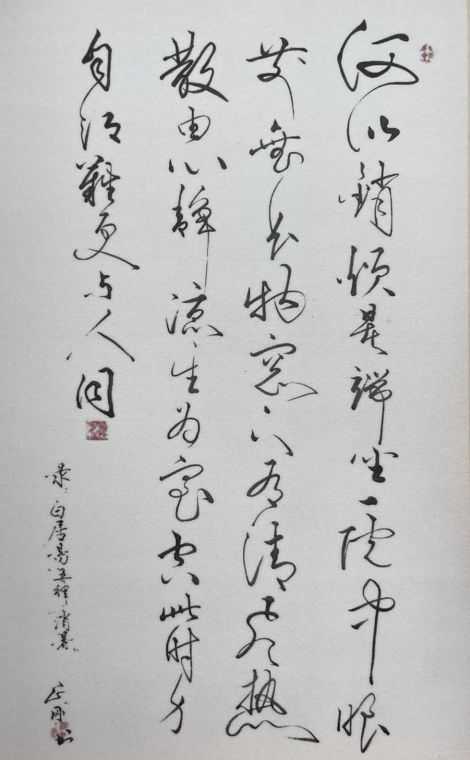 何以銷煩暑端坐一院中眼
前無长物窓下有清風热
散由心静凉生为室空此时身
自得難更与人同
录白居易五律消暑
书